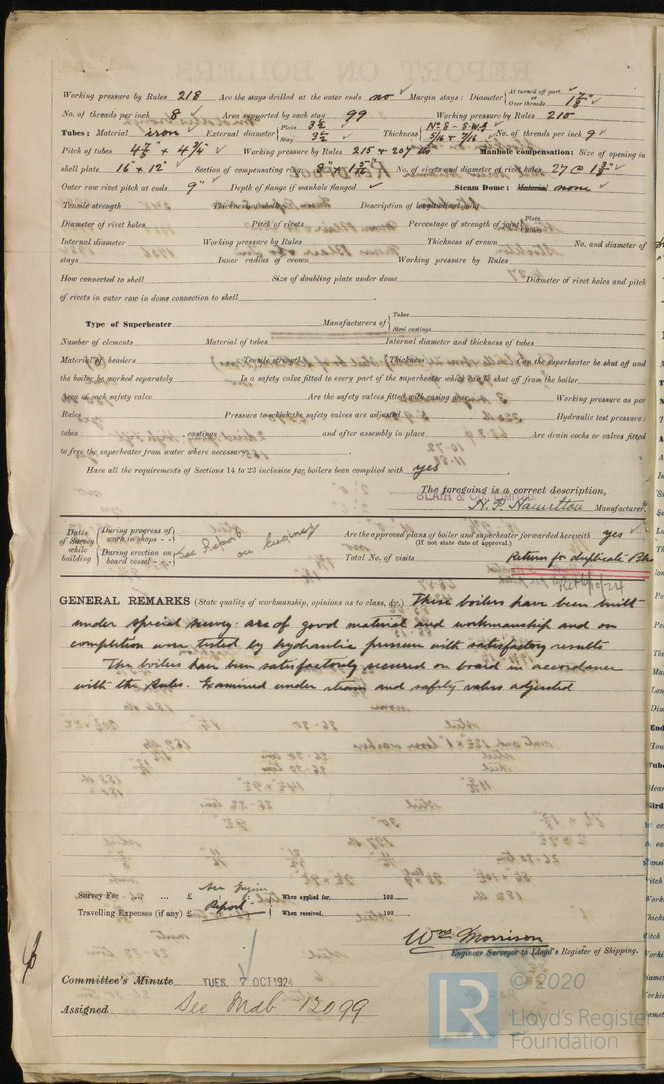 Working pressure by Rules 218 Are the stays drilled at the outer ends no Margin stays: Diameter { At turned off part, or Over threads 1 7/8"
No. of threads per inch 8 Area supported by each stay 99 Working pressure by Rules 210
Tubes: Material iron External diameter { Plain 3 1/2 Stay 3 1/2 Thickness { No 8 - S.W.G 5/16 & 7/16 No. of threads per inch 9
Pitch of tubes 4 7/8" x 4 3/4" Working pressure by Rules 215 & 207 Manhole compensation: Size of opening in
shell plate 16" x 12" Section of compensating ring No. of rivets and diameter of rivet holes 27 @
Outer row rivet pitch at ends 9" Depth of flange if manhole flanged Steam Dome: Material none
Tensile strength Thickness of shell Description of longitudinal joint
Diameter of rivet holes Pitch of rivets Percentage of strength of joint { Plate Rivets
Internal diameter Working pressure by Rules Thickness of crown No. and diameter of
stays Inner radius of crown Working pressure by Rules
How connected to shell Size of doubling plate under dome Diameter of rivet holes and pitch
of rivets in outer row in dome connection to shell
Type of Superheater Manufacturers of { Tubes Steel castings
Number of elements Material of tubes Internal diameter and thickness of tubes
Material of headers Tensile strength Thickness Can the superheater be shut off and
the boiler be worked separately Is a safety valve fitted to every part of the superheater which can be shut off from the boiler
Area of each safety valve Are the safety valves fitted with easing gear Working pressure as per
Rules Pressure to which the safety valves are adjusted Hydraulic test pressure:
tubes castings and after assembly in place Are drain cocks or valves fitted
to free the superheater from water where necessary
Have all the requirements of Sections 14 to 23 inclusive for boilers been complied with yes
The foregoing is a correct description,
BLAIR & CO. LIMITED.
Manufacturer.
Dates of Survey while building { During progress of work in shops - - During erection on board vessel - - - See Report on Engines
Are the approved plans of boiler and superheater forwarded herewith yes
(If not state date of approval.)
Total No. of visits
Return for duplicate
GENERAL REMARKS (State quality of workmanship, opinions as to class, &c.) These boilers have been built
under special survey: are of good material and workmanship and on
completion were tested by hydraulic pressure with satisfactory results
The boilers have been satisfactorily secured on board in accordance
with the Rules. Examined under steam and safety valves adjusted
Survey Fee ... ... £ See Engine : : When applied for, 192
Travelling Expenses (if any) £ Report : : When received, 192
Wm Morrison
Engineer Surveyor to Lloyd's Register of Shipping.
Committee's Minute TUES. 7 OCT 1924
Assigned See Mdb 12099
© 2020
LR
Lloyd's Register
Foundation